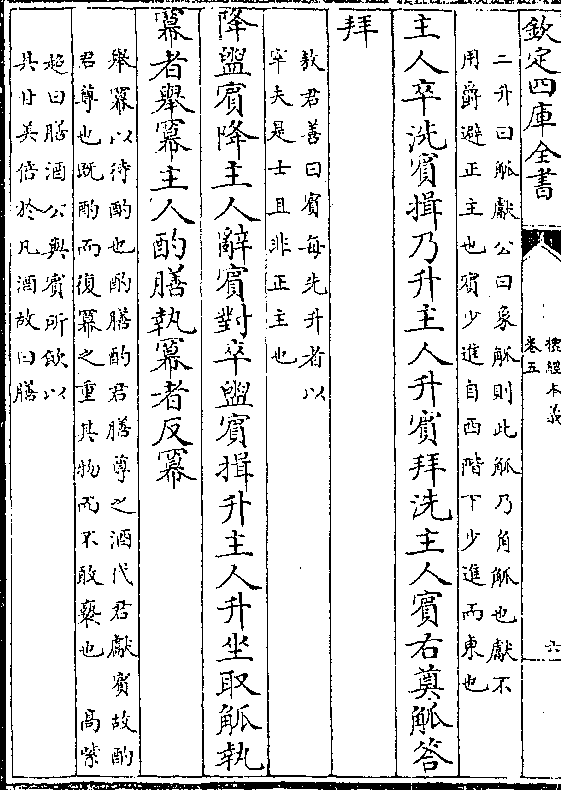 欽定四庫全書
儀經本義
卷五
六
二升曰觚獻公曰象觚則此觚乃角觚也獻不
用爵避正主也賔少進自西階下少進而東也
主人卒洗賔揖乃升主人升賔拜洗主人賔右奠觚答
拜
敖君善曰賔每先升者以
宰夫是士且非正主也
降盥賔降主人辭賔對卒盥賔揖升主人升坐取觚執
冪者舉冪主人酌膳執冪者反冪
舉冪以待酌也酌膳酌君膳尊之酒代君獻賔故酌
君尊也既酌而復冪之重其物而不敢褻也　高紫
超曰膳酒公與賔所飲以
其甘美倍於凡酒故曰膳